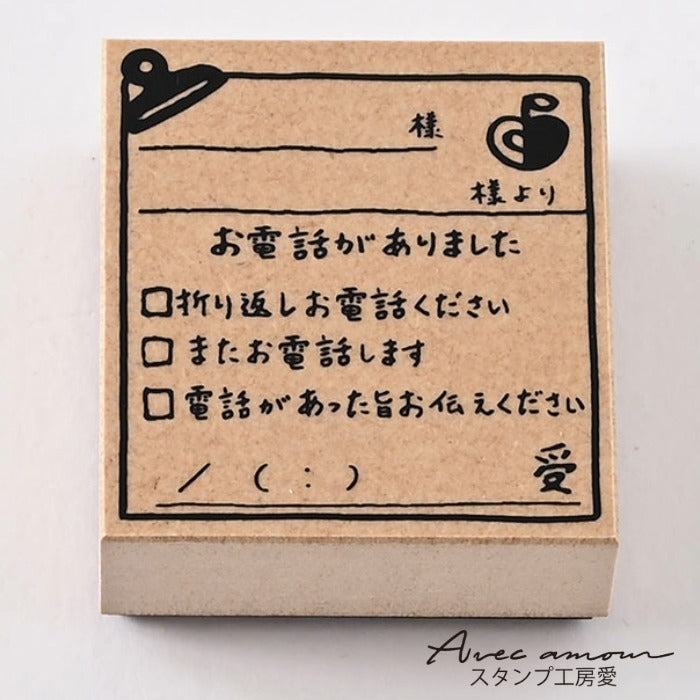 様
様より
お電話がありました
折り返しお電話ください
またお電話します
電話があった旨お伝えください
/ ( : ) 受
Avec amour
スタンプ工房愛